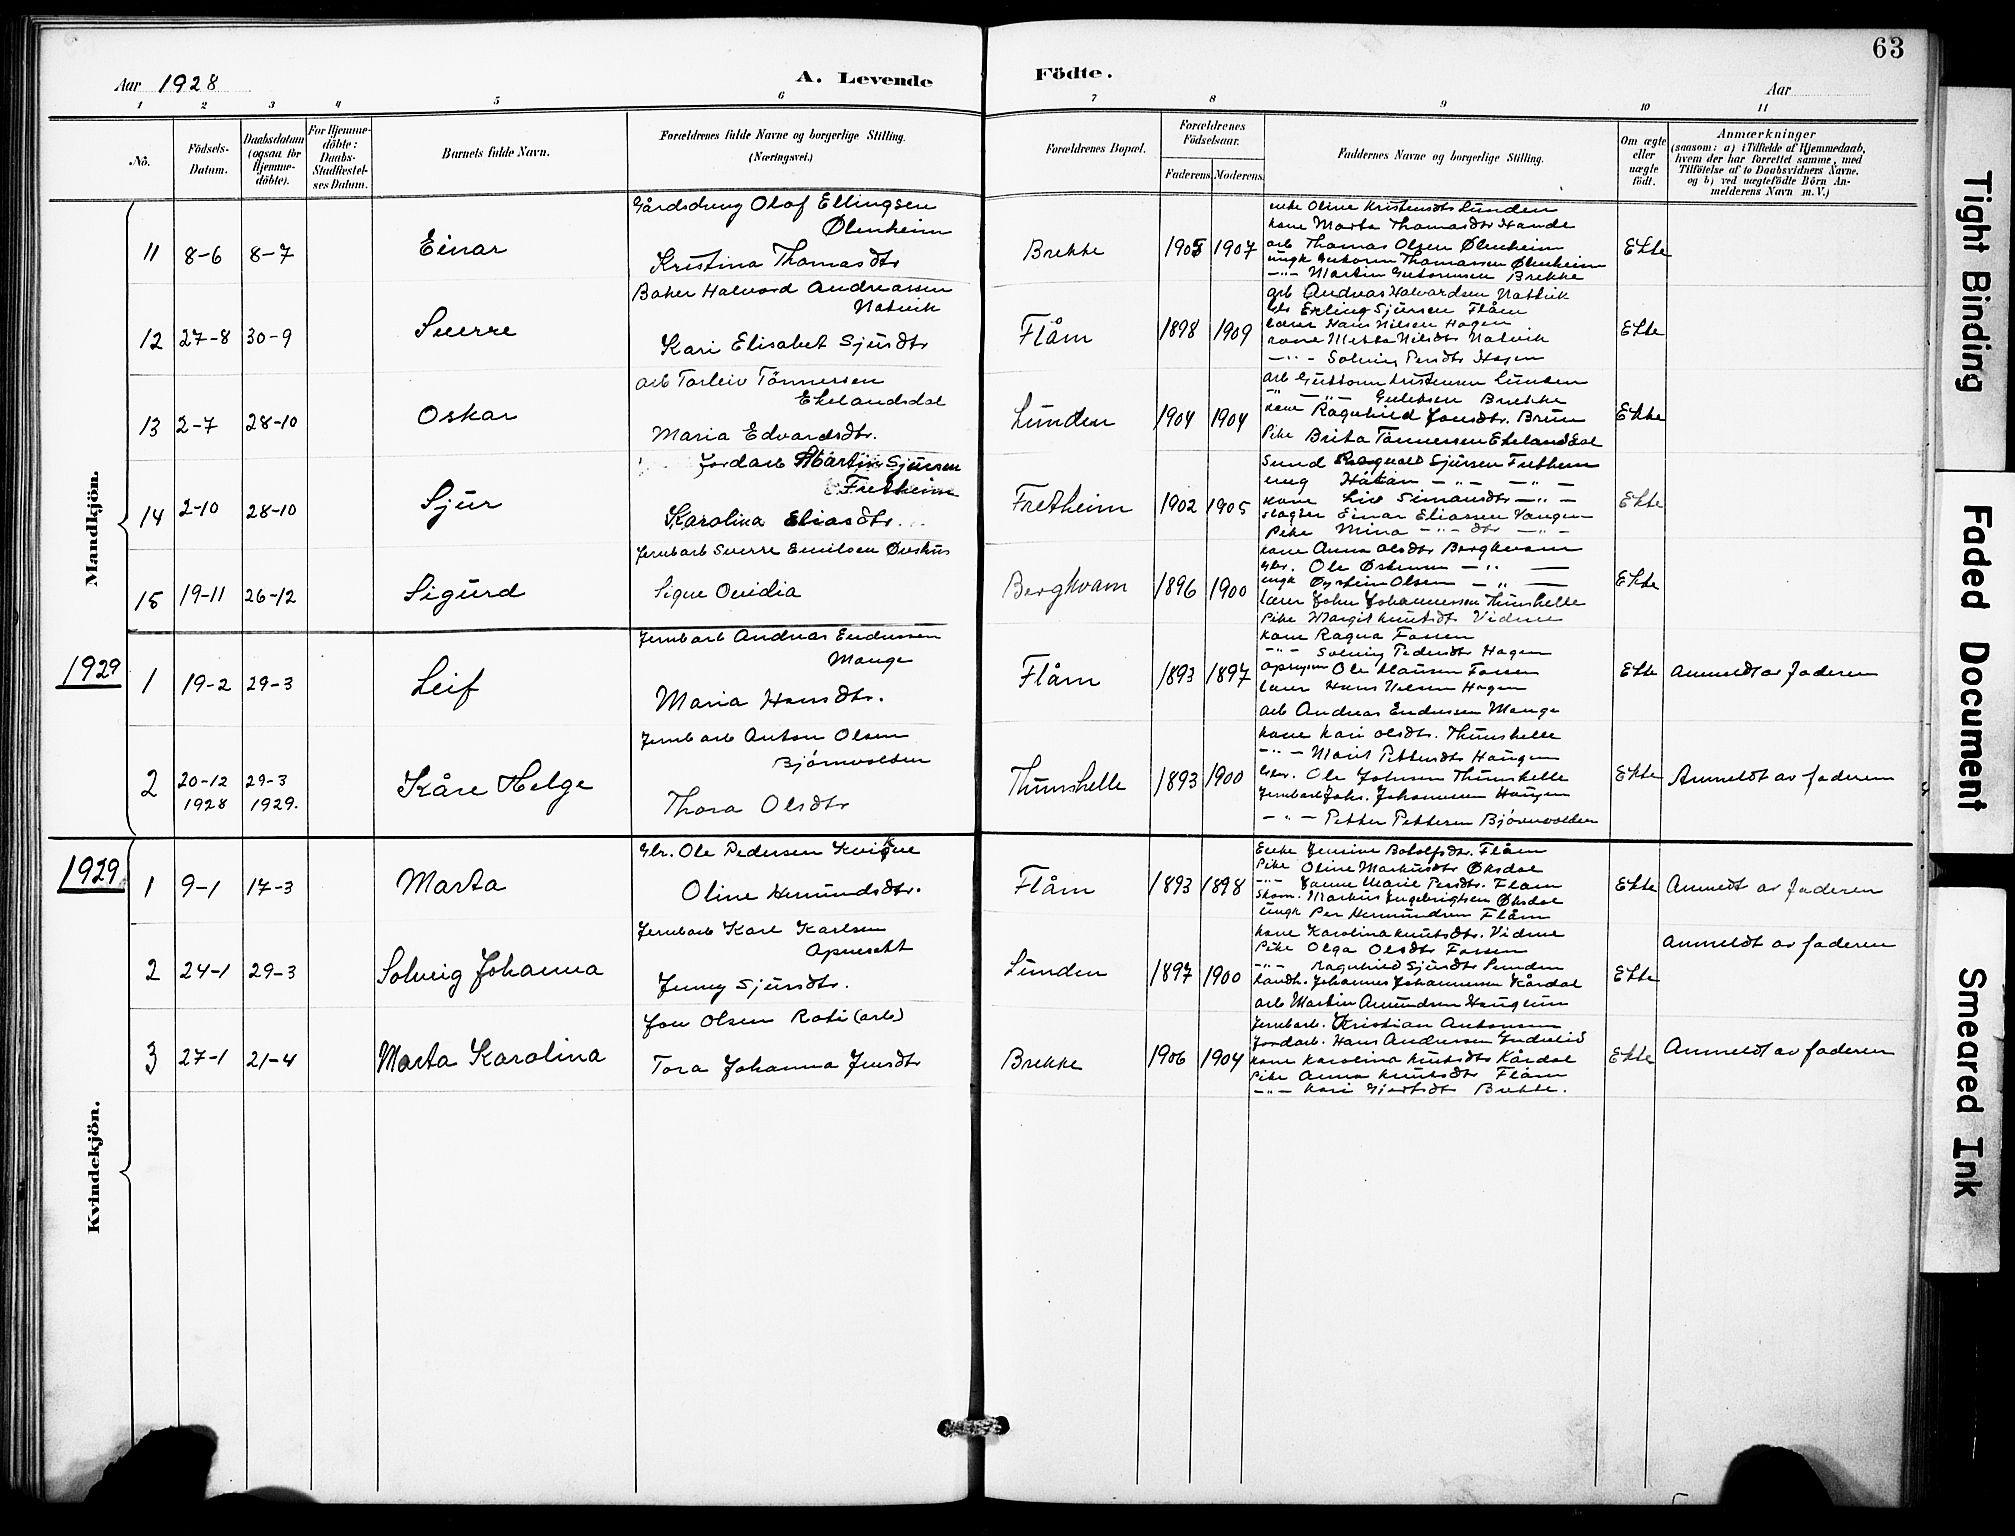 63
Aar 1928
A. Levende
Födte.
Aar
1 2 3 4 5 6 7 8 9 10 11
No.
Födsels-Datum.
Daabsdatum (ogsaa for Hjemme-döbte).
For Hjemme-döbte: Daabs-Stadfæstel-ses Datum.
Barnets fulde Navn.
Forældrenes fulde Navne og borgerlige Stilling.
(Næringsvei.)
Forældrenes Bopæl.
Forældrenes Födselsaar.
Faderens. Moderens.
Faddernes Navne og borgerlige Stilling.
Om ægte eller uægte födt.
Anmærkninger
(saasom: a) i Tilfælde af Hjemmedaab,
hvem der har forrettet samme, med
Tilföielse af to Daabsvidners Navne.
og b) ved uægtefödte Börn An-
melderens Navn m.V.)
Mandkjön.
11 8-6 8-7 Einar
Gårdsdreng Olaf Ellingsen
Ølenheim
Kristina Thomasdtr
Brekke 1905 1907
enke Oline Kristensdtr Lunden
kone Marta Thomasdtr Hande
arb Thomas Olsen Ølenheim
ungk Guttorm Thomassen Ølenheim
-"- Martin Guttormsen Brekke
Ekte
12 27-8 30-9 Sverre
Baker Halvard Andreassen
Natvik
Kari Elisabet Sjursdtr
Flåm 1898 1909
arb Andreas Halvardsen Natvik
Erling Sjursen Flåm
lærer Hans Nilsen Hagen
kone Metta Nilsdtr Natvik
-"- Solveig Persdtr Hagen
Ekte
13 2-7 28-10 Oskar
arb Torleiv Tönnessen
Ekelandsdal
Maria Edvardsdtr.
Lunden 1904 1904
arb Guttorm Kristensen Lunden
-"- -"- Gulleksen Brekke
kone Ragnhild Jonsdtr. Brun
Pike Brita Tönnessen Ekelandsdal
Ekte
14 2-10 28-10 Sjur
Jordarb Martin Sjursen
Fretheim
Karolina Eliasdtr.
Fretheim 1902 1905
Sjursen Fretheim
ung Håkon -"- -"-
kone Liv Simonsdtr -"-
Einar Eliassen Vangen
Pike Mina -"- dtr -"-
Ekte
15 19-11 26-12 Sigurd
Jernbarb Sverre Emilsen Øveshus
Signe Ovidia
Berghvam 1896 1900
kone Anna Olsdtr Berghvam
Gbr. Ole Østensen -"-
ungk Øystein Olsen -"-
lærer John Johannessen Thunshelle
Pike Margit Knutsdtr Vidme
Ekte
1929
1 19-2 29-3 Leif
Jernbarb Andreas Endresen
Mange
Maria Hansdtr.
Flåm 1893 1897
kone Ragna Fossen
-"- Solveig Pedersdtr Hagen
Opsynsm Ole Clausen Fossen
lærer Hans Nilsen Hagen
arb Andreas Endresen Mange
Ekte Anmeldt av faderen
2 20-12 1928 29-3 1929. Kåre Helge
Jernbarb Anton Olsen
Bjørnvolden
Thora Olsdtr
Thunshelle 1893 1900
kone Kari Olsdtr. Thunshelle
-"- Marit Pettersdtr Haugen
Gbr. Ole Johnsen Thunshelle
Jernbarb Johs. Johannesen Haugen
-"- Petter Pettersen Bjørnvolden
Ekte Anmeldt av faderen
1929
Kvindekjön.
1 9-1 17-3 Marta
Gbr. Ole Pedersen Kvikne
Oline Hermundsdtr.
Flåm 1893 1898
Enke Jensine Botolfsdtr. Flåm
Pike Oline Markusdtr Øksdal
-"- Hanne Marie Persdtr. Flåm
Skom. Markus Ingebrigtsen Øksdal
Ungk Per Hermundsen Flåm
Ekte Anmeldt av faderen
2 24-1 29-3 Solveig Johanna
Jernbarb Karl Karlsen
Apneseth
Jenny Sjursdtr.
Lunden 1897 1900
kone Karolina Knutsdtr. Vidme
Pike Olga Olsdtr Fossen
-"- Ragnhild Sjursdtr Lunden
Landh. Johannes Johannessen Kårdal
arb Martin Amundsen Haugum
Ekte Anmeldt av faderen
3 27-1 21-4 Marta Karolina
Jon Olsen Roti (arb)
Tora Johanna Jensdtr
Brekke 1906 1904
Jernbarb. Kristian Antonsen
Jordarb. Hans Andersen Indrelid
kone Karolina Knutsdtr Kårdal
Pike Anna Knutsdtr Flåm
-"- Kari Gjertsdtr Brekke.
Ekte Anmeldt av faderen
Tight Binding
Faded Document
Smeared Ink